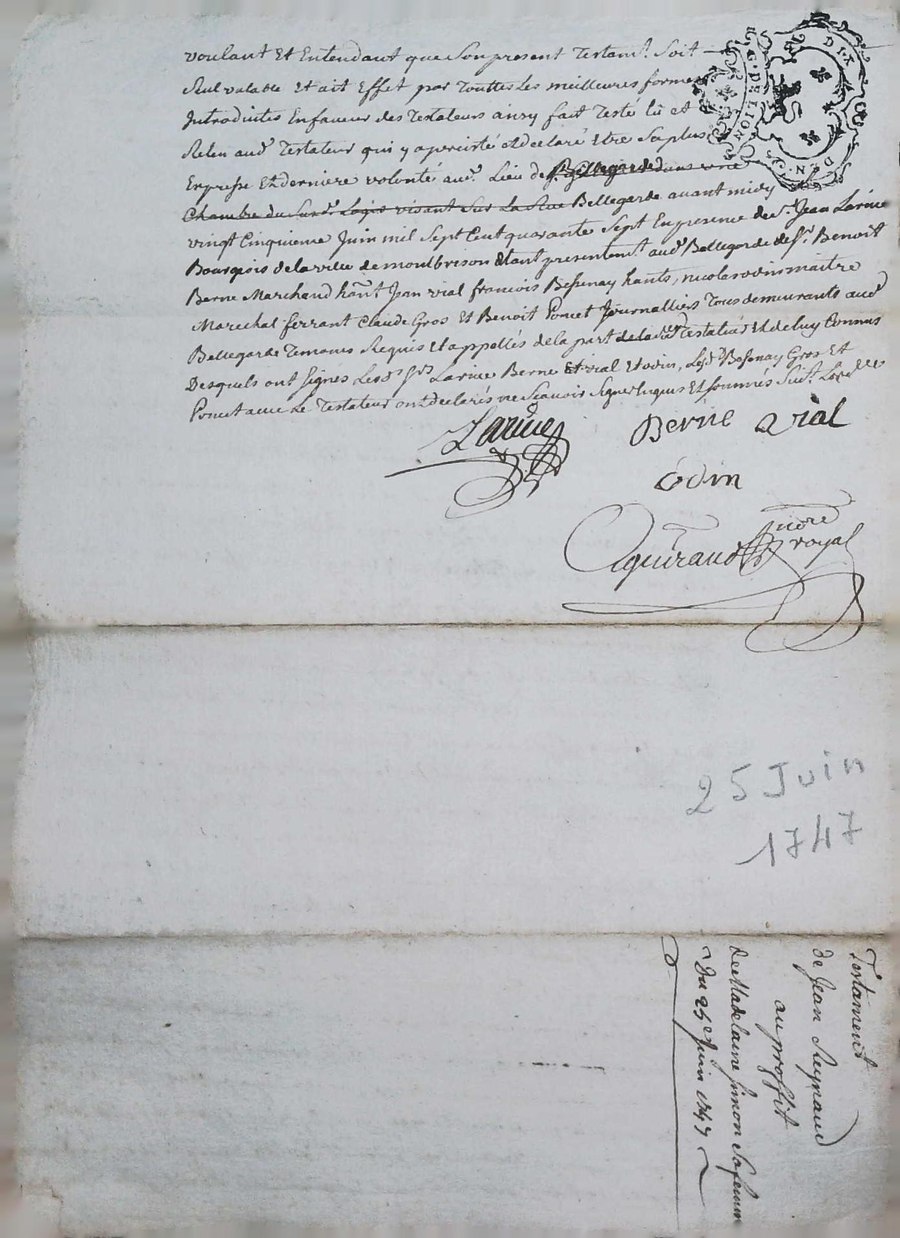 voulant Et Entendant que Son present Testamt. Soit
Seul valable Et ait Effet par Touttes Les meilleures formes
Introduites En faveur des Testateurs ainsy fait Testé lû et
Releu audt. Testateur qui y a persisté et declaré Etre Sa plus
Expresse Et derniere volonté audt. Lieu de Bellegarde dans une
Chambre du Susdt. Logis visant Sur La Rue Bellegarde avant midy
vingt Cinquieme Juin mil Sept Cent quarante Sept En presence de Sr. Jean Larine
Bourgeois de la ville de montbrison Etant presentemt. audt. Bellegarde de Sr. Benoit
Berne Marchand hânt. Jean vial françois Bessenay hants, nicolas odin maitre
Marechal ferrant Claude Gros Et Benoit Poncet Journalliers Tous demeurants audt.
Bellegarde Temoins Requis Et appellés de la part dudt. Testateur Et de luy Connus
Desquels ont signés Lesdts. Srs. Larine Berne Et vial Et odin, Lesdts. Bessenay Gros Et
Poncet avec Le Testateur ont declarés ne Scavoir Signer Enquis Et sommés Suivt. Les
Larine
Berne a vial
odin
Aguiraud
nore
royal
DIX
DEN. P.
G. DE LION
25 Juin
1747
Testament
de Jean Reynaud
au proffit
de Madelaine Simon Sa femme
Du 25e Juin 1747